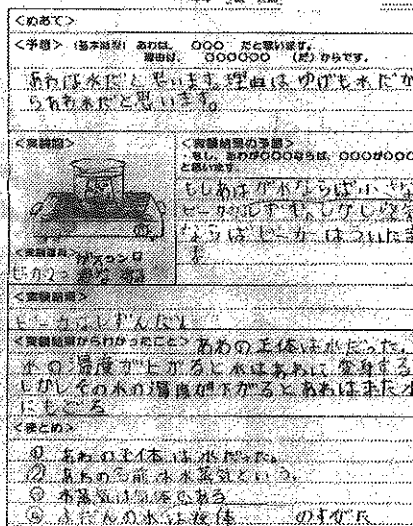 <めあて>
<予想> (基本の形) あわは、○○○ だと思います。
理由は、○○○○○○ (だ) からです。
あわは水だと思います。理由は ゆげも水だか
らあわ水だと思います。
<実験図>
<実験結果の予想>
・もし、あわが○○○ならば、○○○が○○○
と思います。
もしあわが水ならば小さな
ビーカー
ならばビーカーはついたま
ま
<実験道具>
<実験結果>
<実験結果からわかったこと> あわの正体は水だった。
水の温度が上がると水はあわに変身する
しかしその水の温度が下がるとあわはまた水
にもどる
<まとめ>
① あわの正体は水だった。
② あわの名前は水蒸気という。
③ 水蒸気は気体である
④ ふだんの水は液体 のすがた